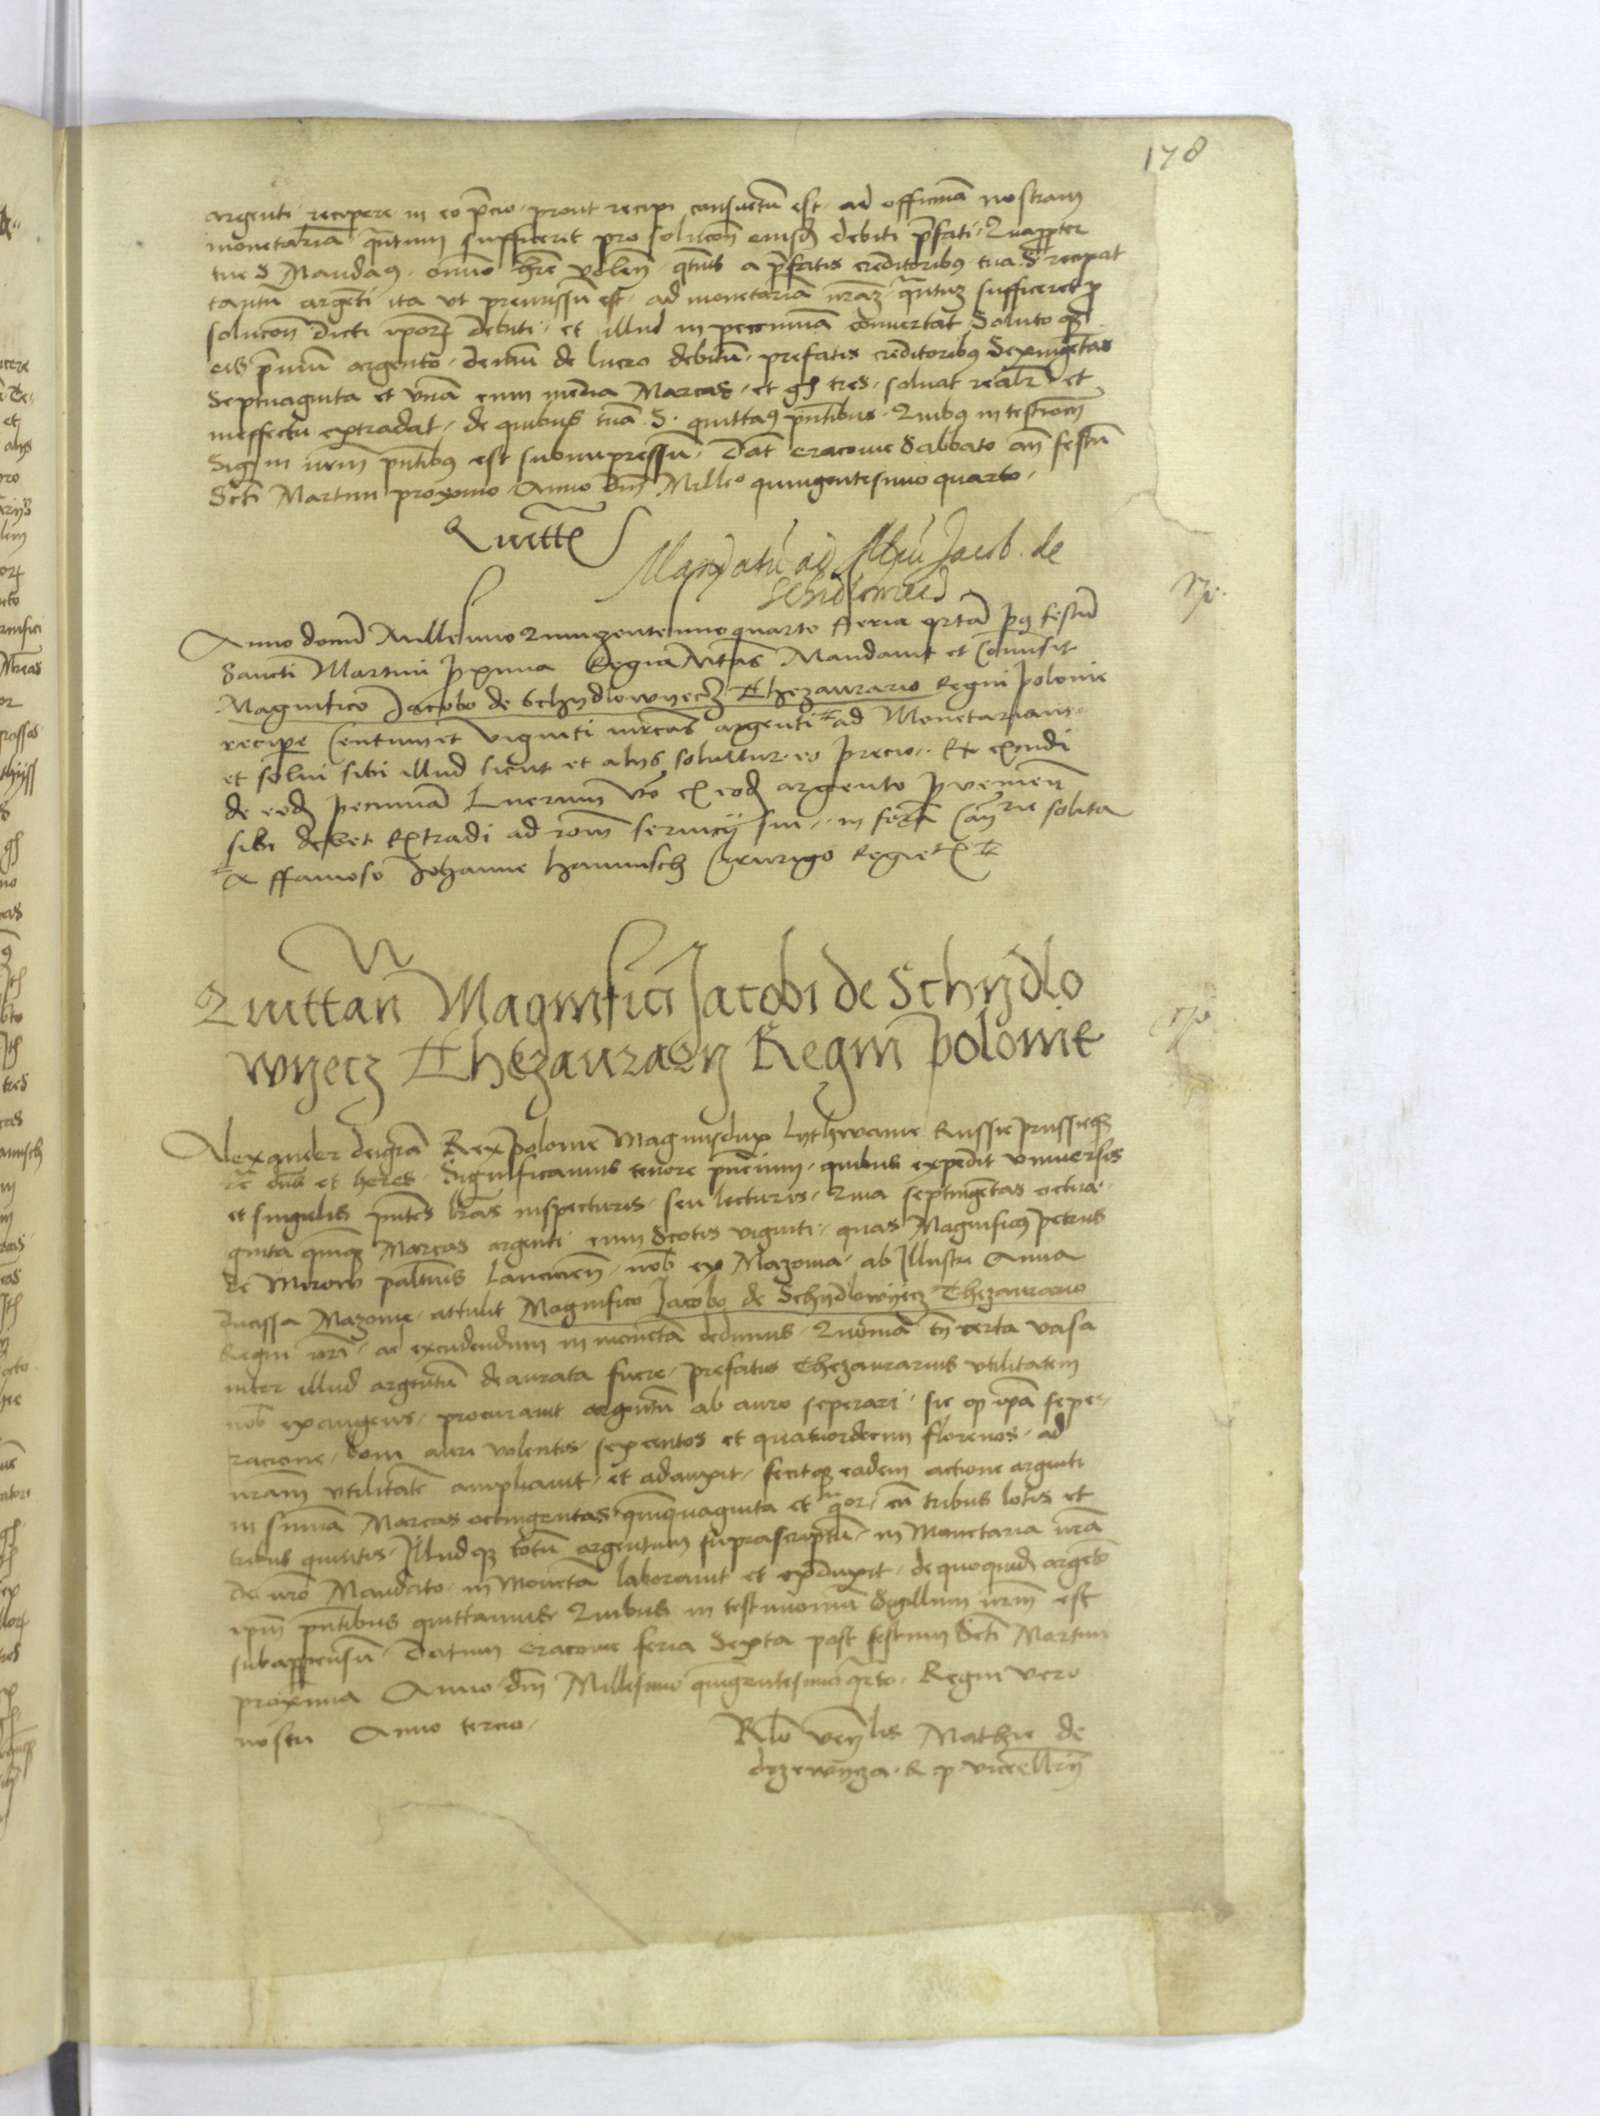 178
argenti recipere in eo p̄cio prout recipi consuetū est ad officinā nostram
monetariā q̄ntum suffiterit pro soluc̄on eiusd̄ debiti p̄fati Quapp̄ter
tue S Mandaꝰ om̄o h̄re volen̄ q̄tn̄s a p̄fatis creditoribꝰ tua S recipiat
tantū argēti ita ut premissū est ad monetariā nr̄aʒ q̄ntuʒ sufficeret ꝓ
soluc̄on dicti ip̄oꝝ debiti et illud in pecuniā convertat Soluto qꝫ
eis p̄miū argento demū de lucro debitū prefatis creditoribꝰ Sexingētas
Septuaginta et vnā cum media Marcas et gͬ tres soluat realr̄ et
ineffectu extradat de quibus tuā S quittaꝰ p̄ntibus Quibꝰ in testiom̄
Sigm̄ nr̄m p̄ntibꝰ est subimpressū Dat̄ Cracovie Sabbato an̄ festū
Sc̄ti Martini proximo Anno dn̄i Milleo quingentesimo quarto
Quitt̄
Mandatū ad Jacob. de
Schidlowiecz
Anno domī Millesimo Quingentesimoquarto Feria qrtā pꝰ festū
Sancti Martini pxima Regia Mtās Mandavit et Comisit
Magnifico Jacobo de Schydlowyecz Thezaurario Regni Polonie
recipe Centum et viginti mrcas argenti ad Monetariam
et solui sibi illud sicut et alijs soluitur eo precio Et cudi
de eod̄ pecuniā Lucrum vo ex eod̄ argento pvenien̄
sibi debet Extradi ad rōm seruicij sui in fōra Can̄rie solita
A ffamoso Johanne hannusch Cirurigo Regie
Quittan̄ Magnifici Jacobi de Schydlo
wyecz Thezaurarij Regni Polonie
Alexander dei grā Rex Polonie Magnusdux Lythwanie Russie Prussieqꝫ
rc̄ dn̄s et heres Significamus tenore pn̄cium quibus expedit vniuersis
et singulis pn̄tes lr̄as inspecturis seu lecturis Quia septingētas octua
ginta quinqꝫ Marcas argenti cum Scotis viginti quas Magnificꝰ Petrus
de palt̄nus Lancicien̄ nob̄ ex Mazovia ab Illustri Anna
ducissa Mazovie attulit Magnifico Jacobo de Schydlowyecz Thezaurario
Regni nr̄i ac excudendum in monetā dedimus Quoniā tn̄ certa vasa
inter illud argentū deaurata fuere prefatus Thezaurarius vtilitatem
nob̄ exaugens procurauit argentū ab auro seperari sic ꝙ ip̄a sepe
racione auri volentes sexcentos et quatuordecim florenos ad
nr̄am vtilitatē ampliauit et adauxit fecitqꝫ eadem actione argenti
in sum̄ā Marcas octingentas quinquaginta et qͣtuor cū tribus lotis et
tribus quintis Illudqꝫ totū argentum suprascriptū in Monetaria nr̄a
de nr̄o Mandato in Monetā laborauit et eduxit de quoquid̄ argēto
ip̄m p̄ntibus quittamus Quibus in testimoniū Sigillum nr̄m est
subappensū Datum Cracovie feria Sexta post festum Sc̄ti Martini
proxima Anno dn̄i Millesimo quingentesimoqͣrto Regni vero
nostri Anno tercio
Rl̄o ven̄lis Mathie de
drzewycza R p vicecll̄rij